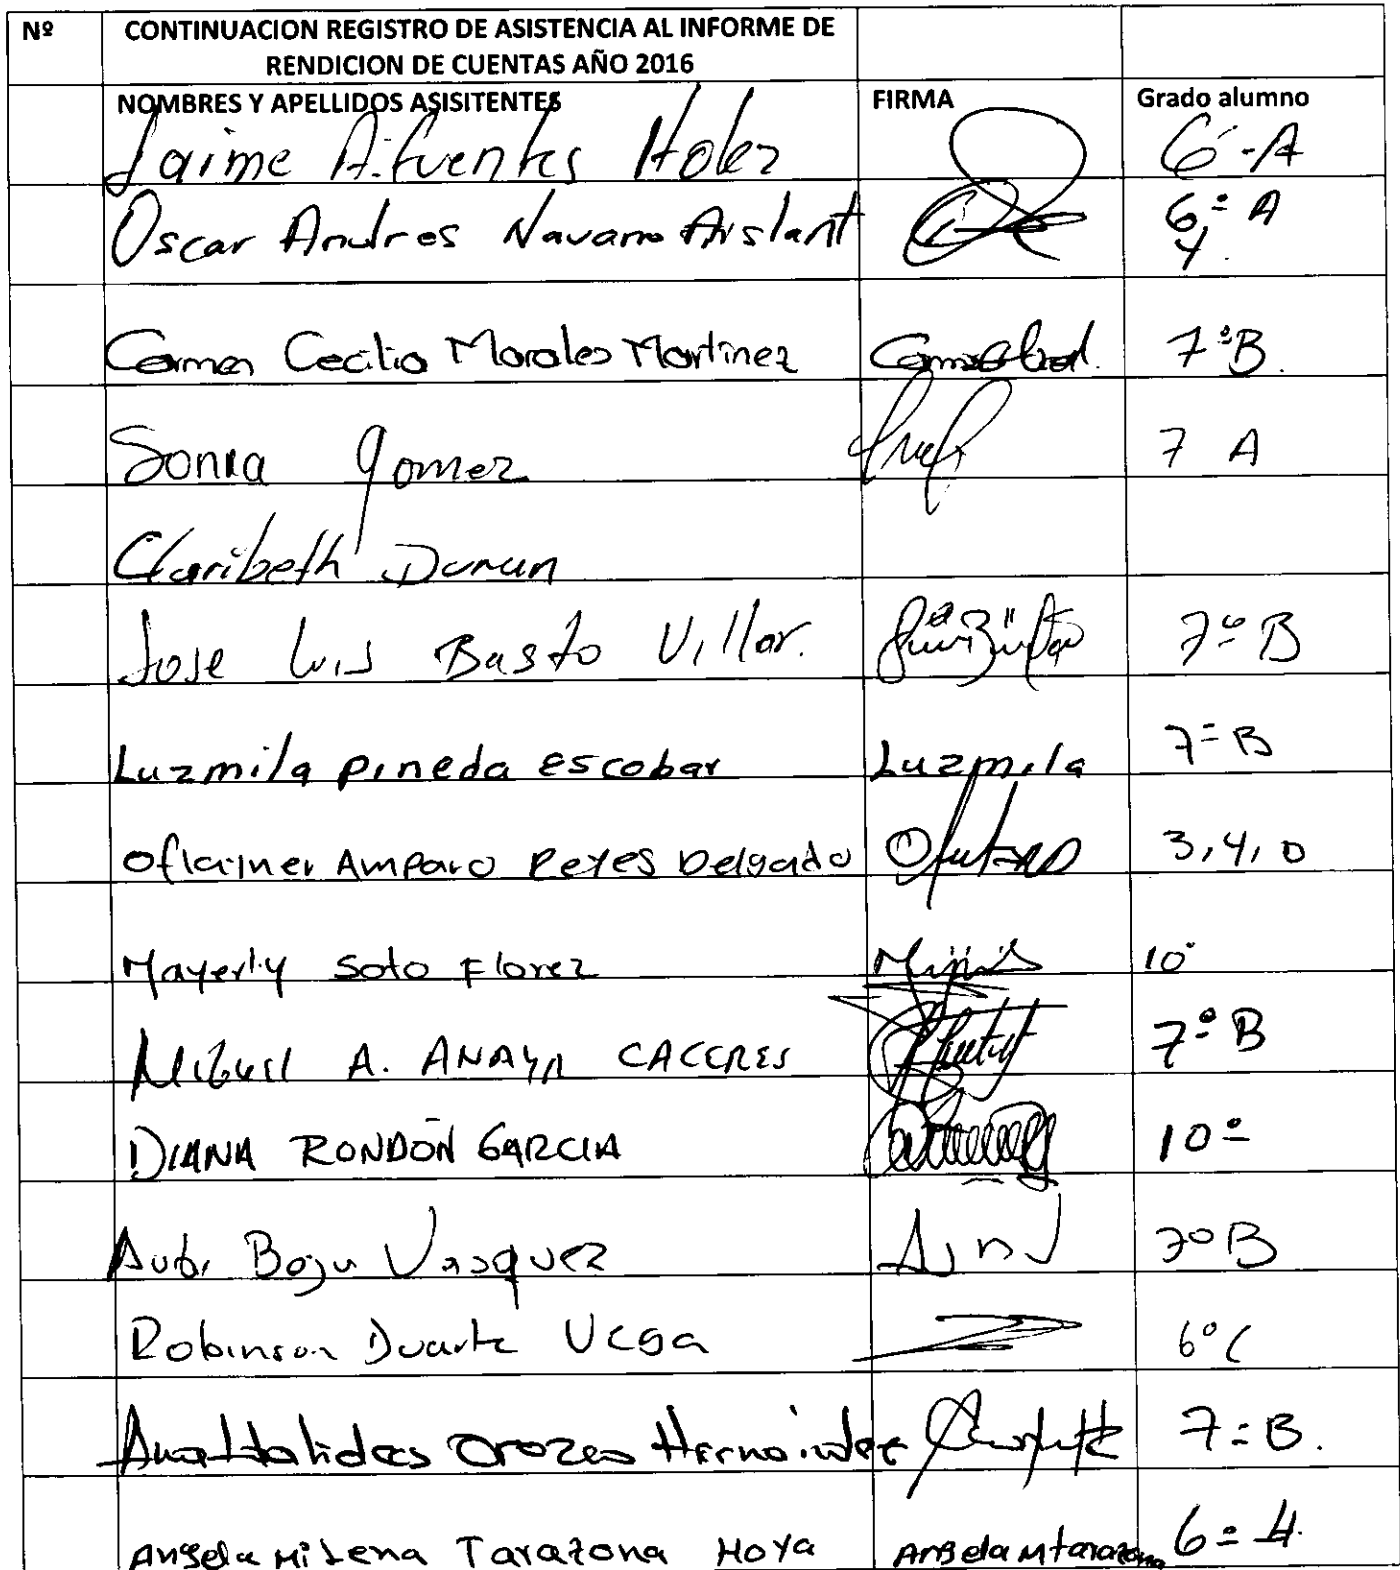 Nº CONTINUACION REGISTRO DE ASISTENCIA AL INFORME DE
RENDICION DE CUENTAS AÑO 2016
NOMBRES Y APELLIDOS ASISITENTES FIRMA Grado alumno
Jaime A. fuentes 6º-A
Oscar Andres Navarro 6º A
4
Carmen Cecilia Morales Martinez 7ºB.
Sonia Gomez 7 A
Claribeth Duran
Jose Luis Basto Villar. 7º B
Luzmila pineda escobar Luzmila 7º B
Oflaimer Amparo Reyes Delgado 3,4,0
Mayerly Soto Florez 10º
Miguel A. ANAYA CACERES 7º B
DIANA RONDÓN GARCIA 10º
Vasquez 7º B
Robinson Duarte Vega 6º C
Orozco Hernández 7º B.
Angela Milena Tarazona Moya Angela M tarazona 6º